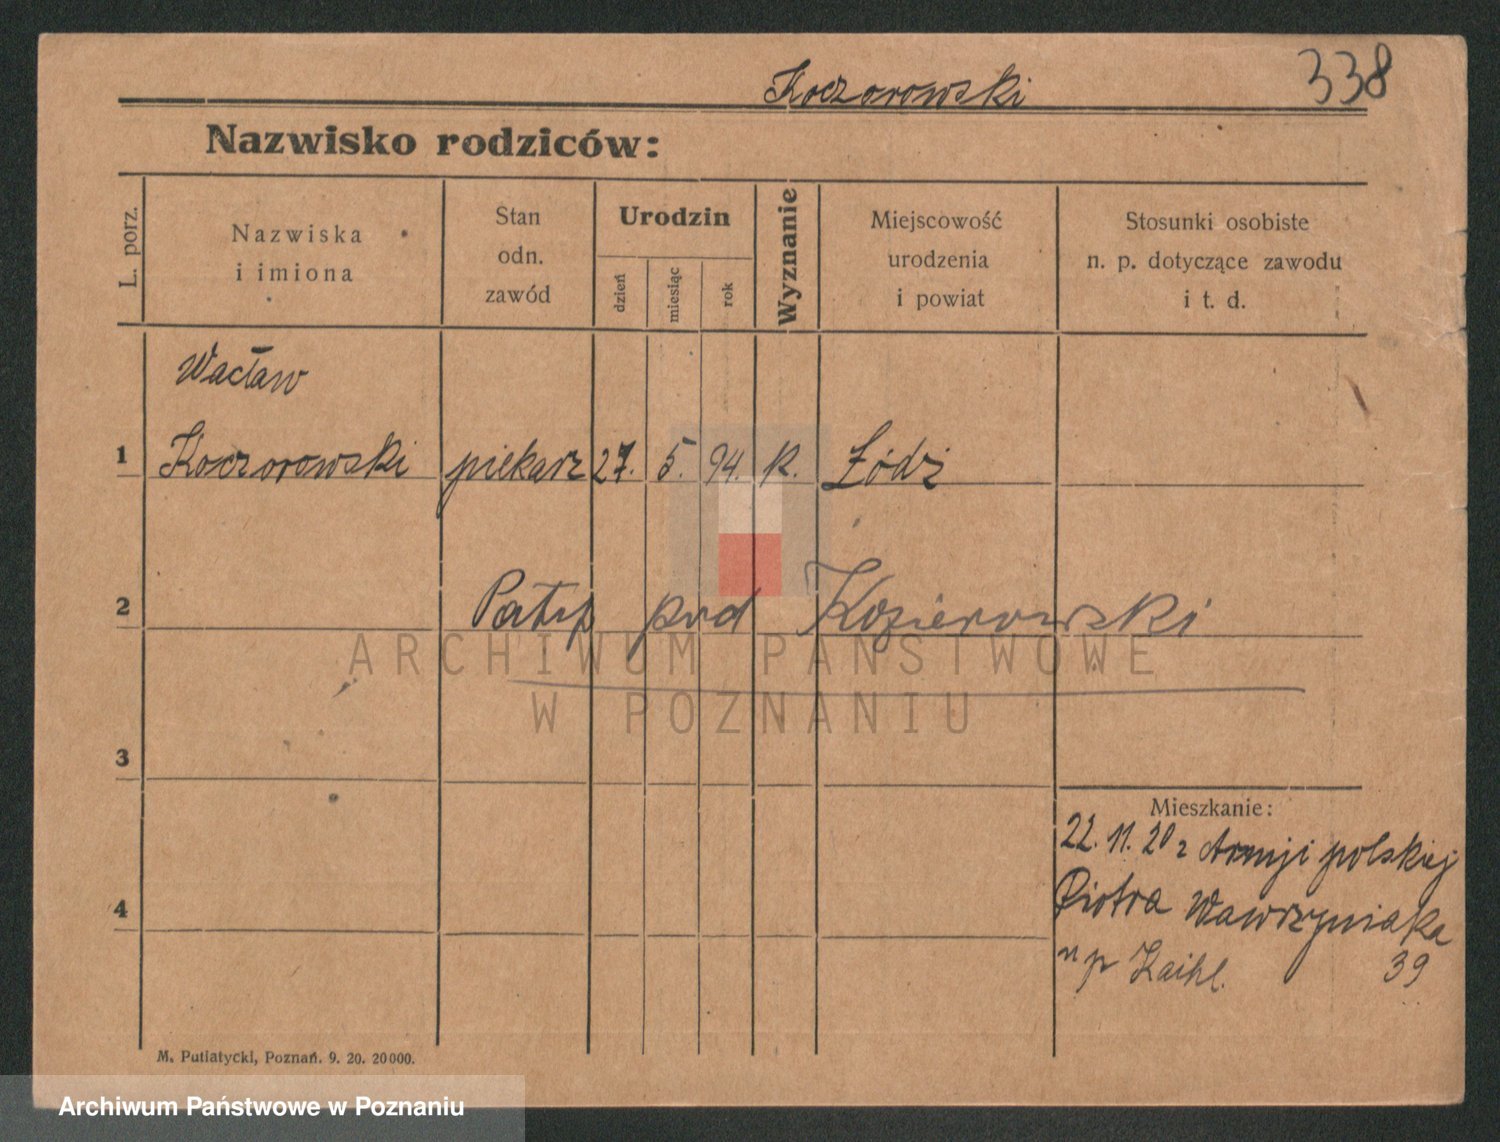 Koczorowski
338
Nazwisko rodziców:
L. porz.
Nazwiska
i imiona
Stan
odn.
zawód
Urodzin
dzień
miesiąc
rok
Wyznanie
Miejscowość
urodzenia
i powiat
Stosunki osobiste
n. p. dotyczące zawodu
i t. d.
Wacław
1 Koczorowski piekarz 27. 5. 94. k. Łódź
2 pod Kozierowski
ARCHIWUM PAŃSTWOWE
W POZNANIU
3
Mieszkanie:
22. 11. 20 z Armji polskiej
4 Piotra Wawrzyniaka
39
M. Putiatycki, Poznań. 9. 20. 20000.
Archiwum Państwowe w Poznaniu